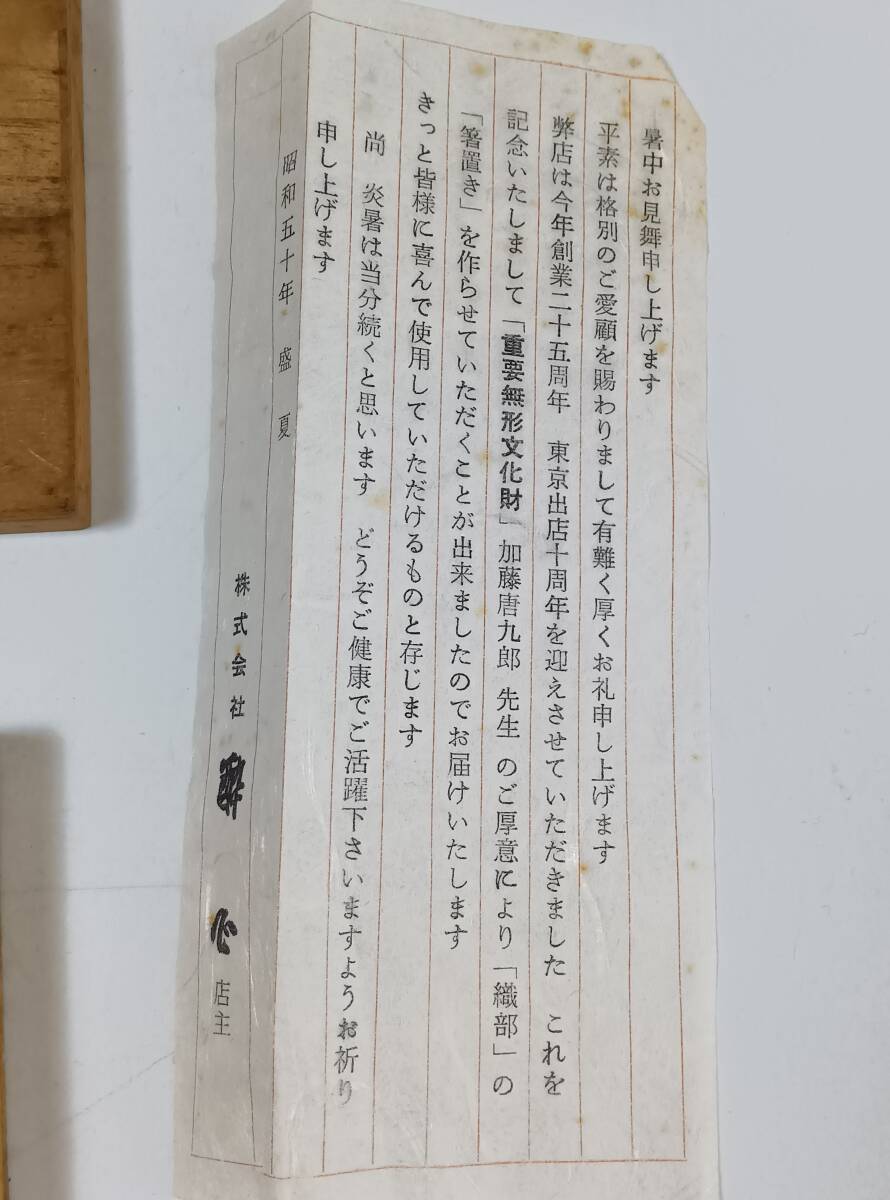 暑中お見舞申し上げます
平素は格別のご愛顧を賜わりまして有難く厚くお礼申し上げます
弊店は今年創業二十五周年 東京出店十周年を迎えさせていただきました これを
記念いたしまして「重要無形文化財」加藤唐九郎 先生 のご厚意により「織部」の
「箸置き」を作らせていただくことが出来ましたのでお届けいたします
きっと皆様に喜んで使用していただけるものと存じます
尚 炎暑は当分続くと思います どうぞご健康でご活躍下さいますようお祈り
申し上げます
昭和五十年 盛夏
株式会社 心 店主